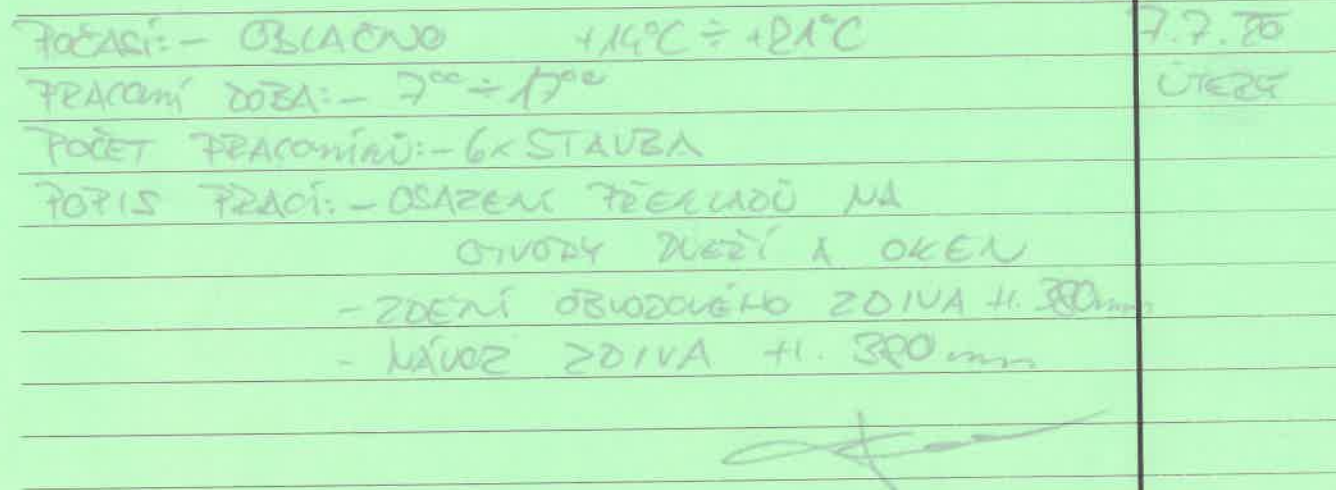 POČASÍ:- OBLAČNO +14°C ÷ +21°C 7.7.20
PRACOVNÍ DOBA:- 7⁰⁰ ÷ 17⁰⁰ ÚTERÝ
POČET PRACOVNÍKŮ:- 6x STAVBA
POPIS PRACÍ:- OSAZENÍ PŘEKLADŮ NA
OTVORY DVEŘÍ A OKEN
- ZDĚNÍ OBVODOVÉHO ZDIVA tl. 380mm
- NÁVOZ ZDIVA tl. 380 mm